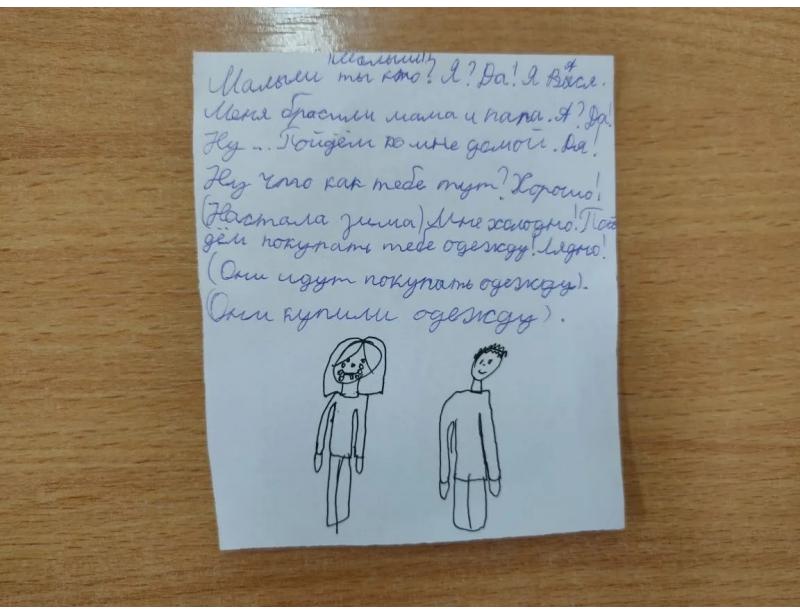 Малыш!
Малыш ты кто? Я? Да! Я Вася.
Меня брасили мама и папа. А? Да!
Ну ... Пойдём ко мне домой. Да!
Ну что как тебе тут? Хорошо!
(Настала зима) Мне холодно! Пой
дём покупать тебе одежду! Лядно!
(Они идут покупать одежду).
(Они купили одежду).